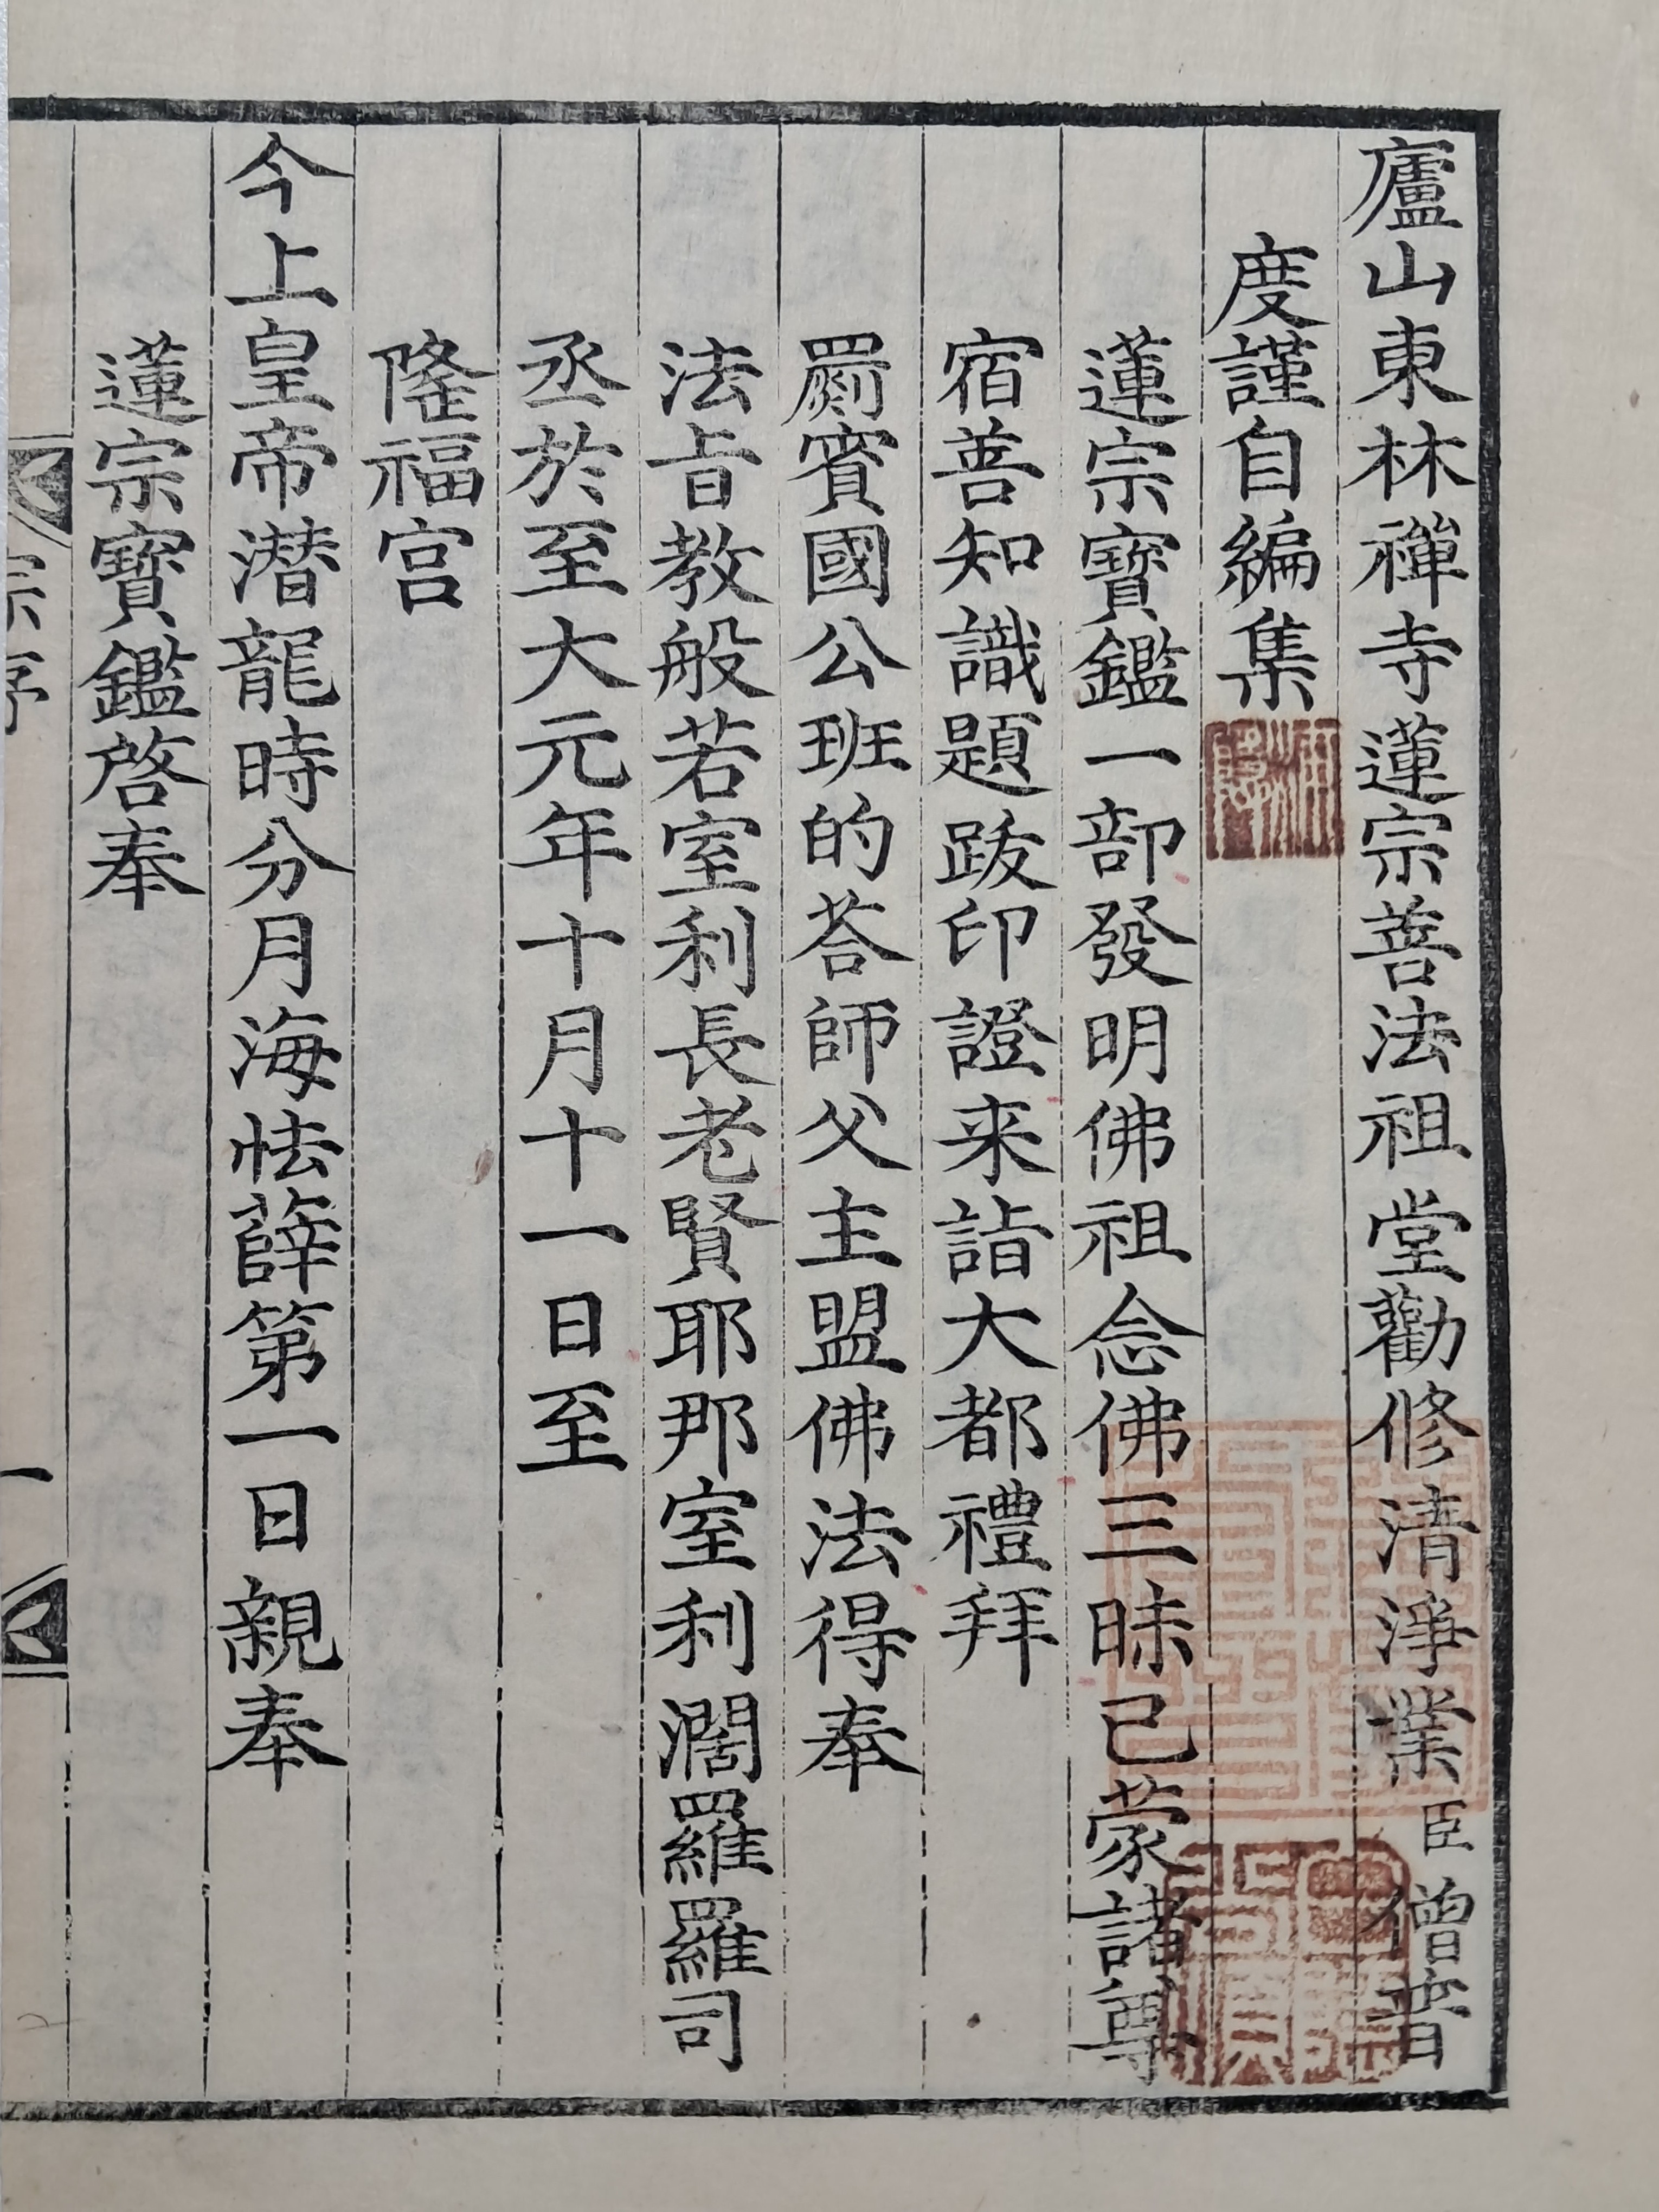 廬山東林禪寺蓮宗善法祖堂勸修清淨業臣僧普
度謹自編集
蓮宗寶鑑一部發明佛祖念佛三昧已蒙諸尊
宿善知識題跋印證来詣大都禮拜
罽賓國公班的荅師父主盟佛法得奉
法旨教般若室利長老賢耶那室利濶羅羅司
丞於至大元年十月十一日至
隆福宫
今上皇帝潜龍時分月海怯薛第一日親奉
蓮宗寶鑑啓奉
宗序
一